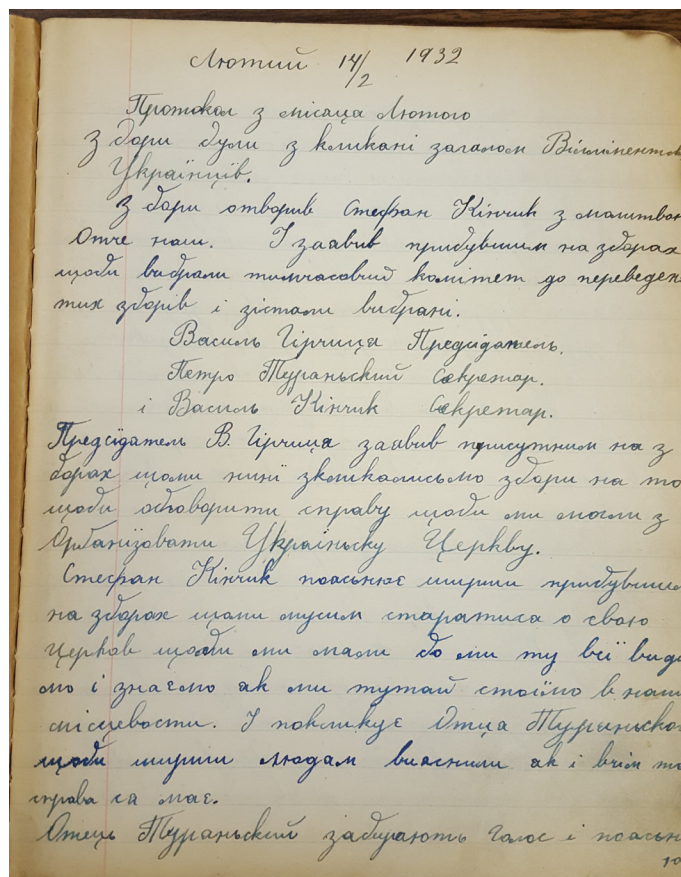 Лютий 14/2 1932
Протокол з місаца Лютого
З бори були з кликані загалом Вілмінентск
Українців.
З бори отворив Стефан Кінчик з молитвою
Отче наш. І заавив прибувшим на зборах
щоби вибрали тимчасовий комітет до переведен
тих зборів і зістали вибрані.
Василь Гірчица Предсідатель.
Петро Тураньский Секретар.
і Василь Кінчик Секретар.
Предсїдатель В. Гірчица заавив присутним на з
борах щоми нинї зкликалисьмо збори на то
щоби обговорити справу щоби ми могли з
Орґанїзовати Україньску Церкву.
Стефан Кінчик поаснює ширши прибувшим
на зборах щоми мусим старатиса о свою
церков щоби ми мали бо ми ту всї види
мо і знаємо ак ми тутай стоїмо в наши
місцевости. І покликує Отца Тураньско
щоби ширши людам виаснили ак і вчім та
справа са має.
Отець Тураньский забирають голос і поасьн